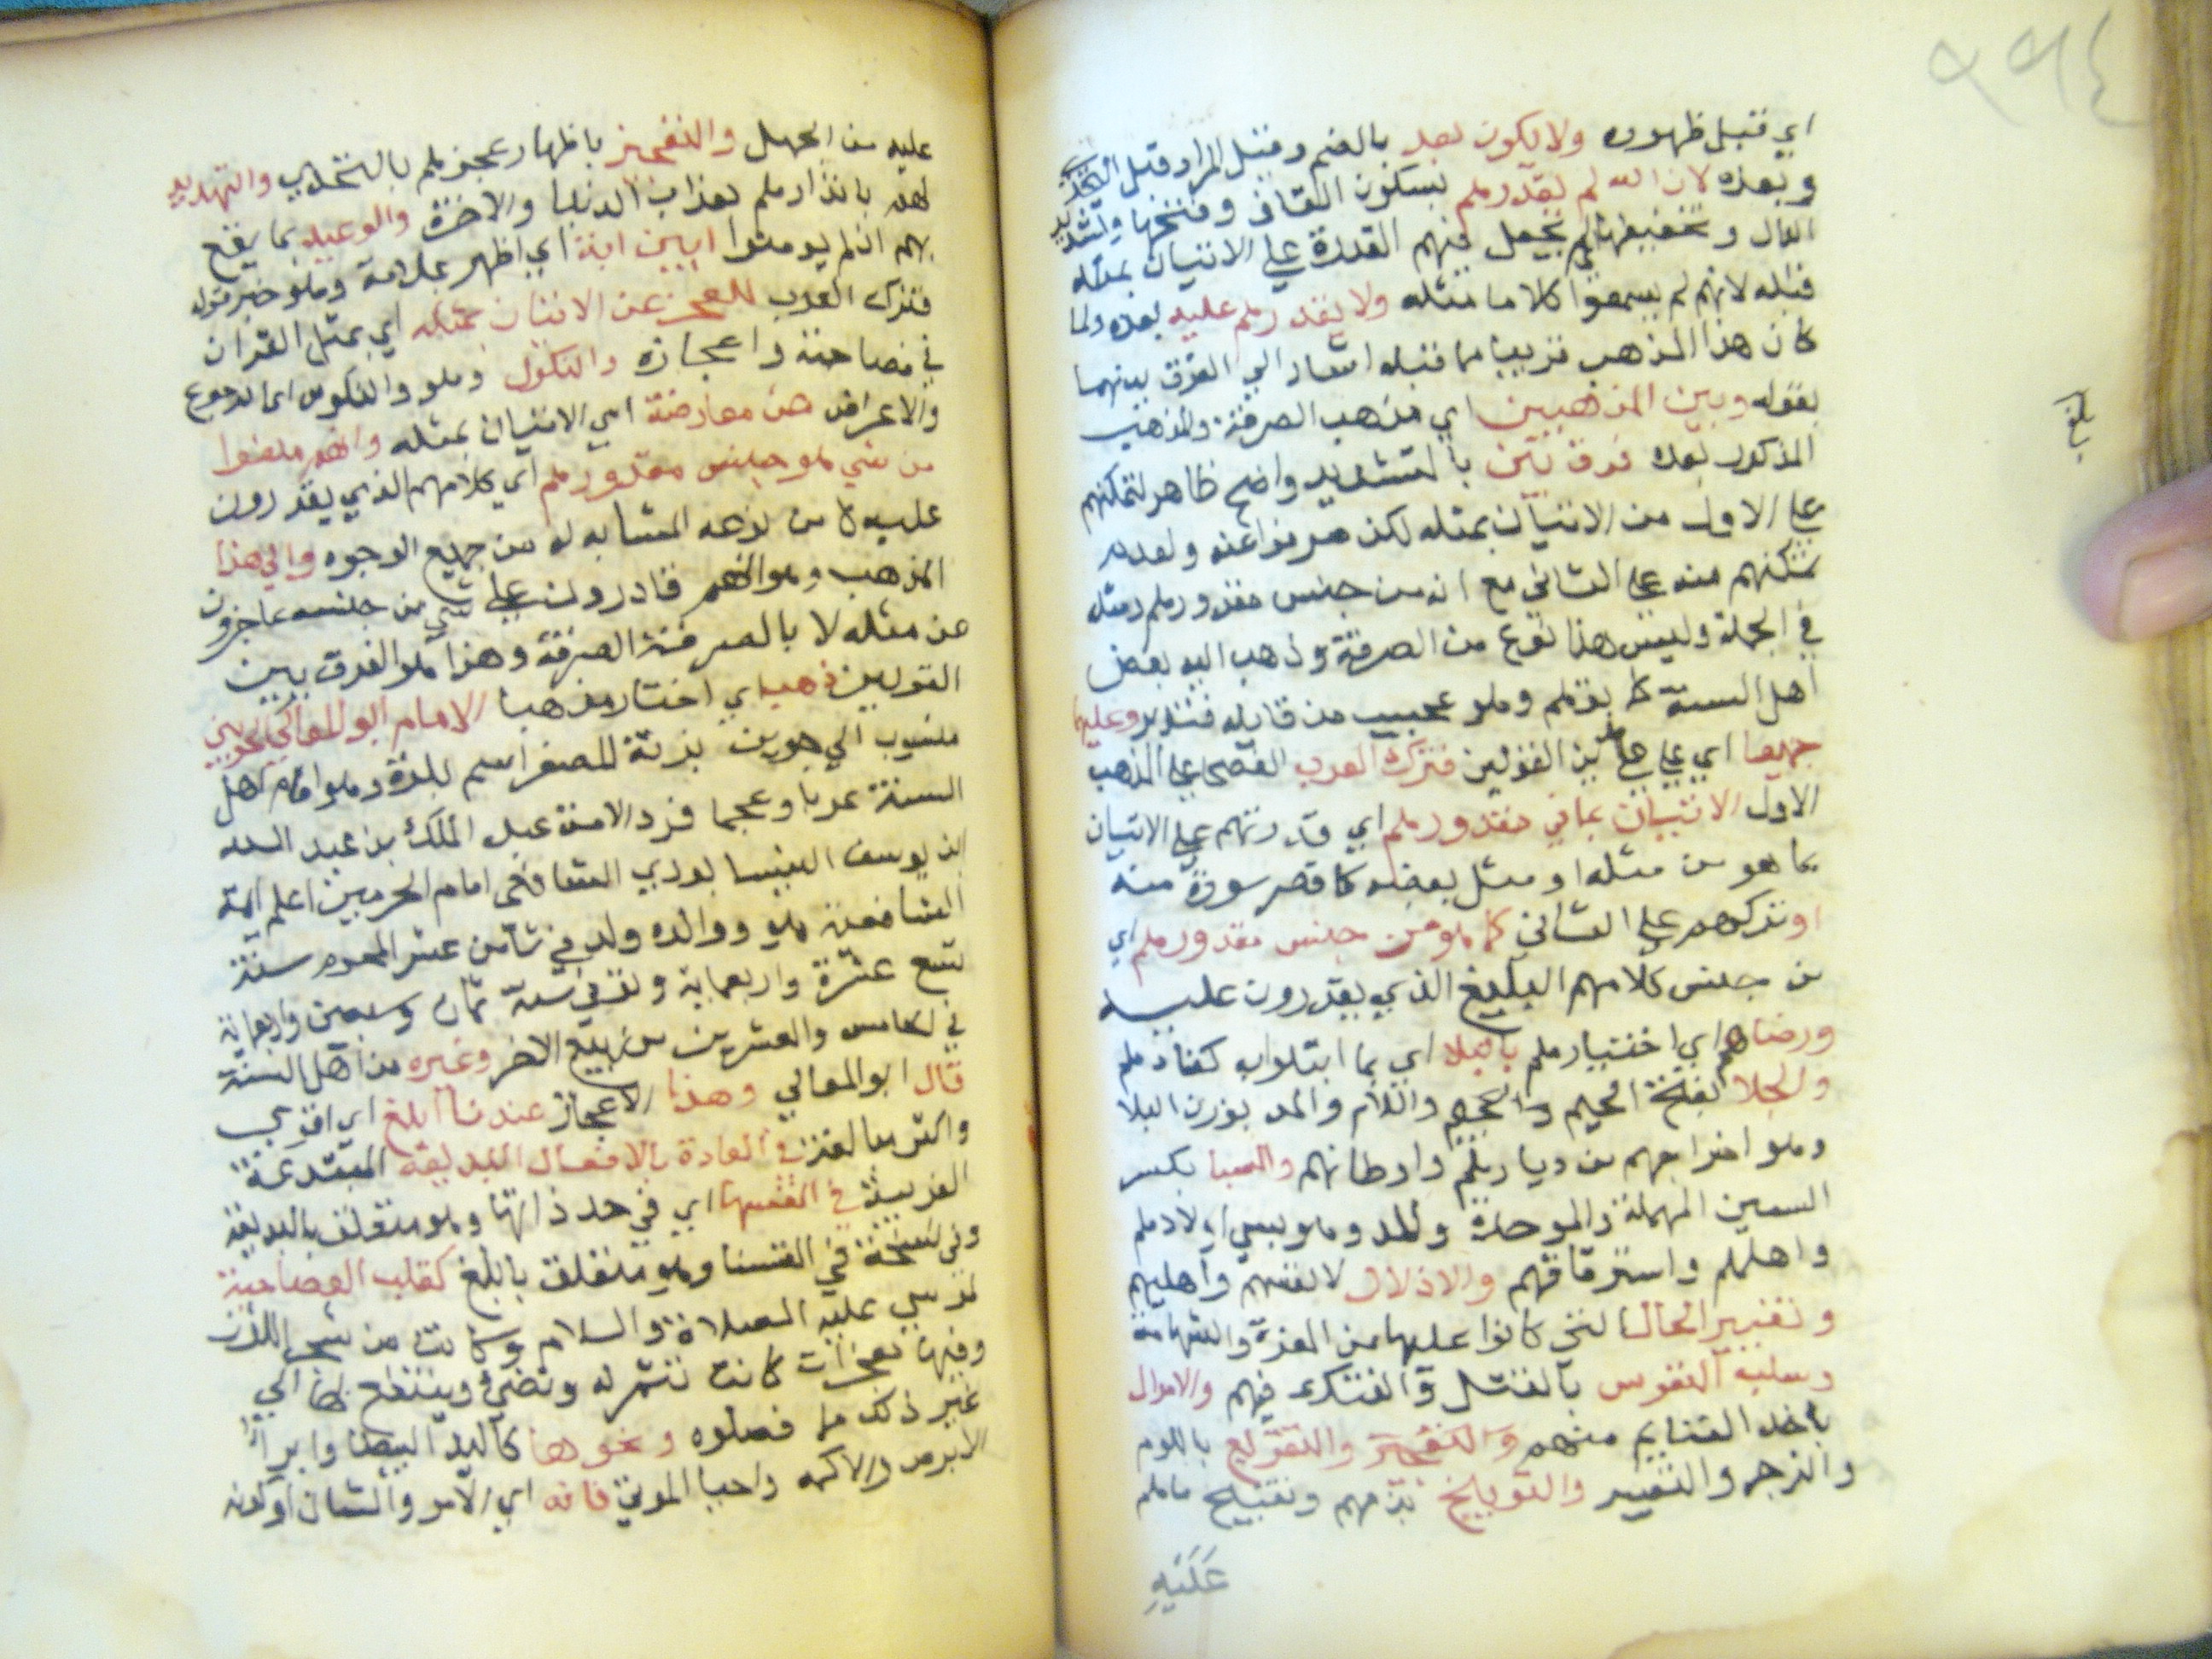 ٩٩٤
اي قبل ظهوره ولا يكون بعد بالضم وقيل المراد قبل التحدي
وبعده لان الله لم يقدرهم بسكون القاف وفتحها وتشديد
الدال وتخفيفها اي لم يجعل فيهم القدرة علي الاتيان بمثله
قبله لانهم لم يسمعوا كلاما مثله ولا يقدرهم عليه بعده ولما
كان هذا المذهب قريبا مما قبله اشار الي الفرق بينهما
بقوله وبين المذهبين اي مذهب الصرفة والمذهب
المذكور بعده فرق بين بالتشديد واضح ظاهر لتمكنهم
علي الاول من الاتيان بمثله لكن صرفوا عنه ولعدم
تمكنهم منه علي الثاني مع انه من جنس مقدورهم ومثله
في الجملة وليس هذا نوع من الصرفة وذهب اليه بعض
اهل السنة كما يوهم وهو عجيب من قايله فتدبر وعليهما
جميعا اي علي القولين فترك العرب الفصحا علي المذهب
الاول الاتيان بما في مقدورهم اي قدرتهم علي الاتيان
بما هو من مثله او مثل بعضه كاقصر سورة منه
او تركهم علي الثاني كما هو من جنس مقدورهم اي
من جنس كلامهم البليغ الذي يقدرون عليه
ورضاهم اي اختيارهم بالبلا اي بما ابتلوا به كفادهم
والجلا بفتح الجيم والجيم واللام والمد بوزن البلا
وهو اخراجهم من ديارهم واوطانهم والسبا بكسر
السين المهملة والموحدة والمد وهو سبي اولادهم
واهلهم واسترقاقهم والاذلال لانفسهم واهليهم
وتغيير الحال التي كانوا عليها من العزة والشهامة
وسلب النفوس بالقتل والفتك فيهم والاموال
باخذ الغنايم منهم والتعجيز والتقريع باللوم
والزجر والتعيير والتوبيخ بذمهم وتقبيح ماهم
عَلَيْهِ
بلغ
عليه من الجهل والتعجيز باظهار عجزهم بالتحدي والتهديد
لهم بانذارهم بعذاب الدنيا والاخرة والوعيد بما يقع
بهم ان لم يومنوا ابين اية اي اظهر علامة وهو خبر قوله
فترك العرب للعجز عن الاتيان بمثله اي بمثل القران
في فصاحته واعجازه والنكول وهو والنكوص اي الرجوع
والاعراض عن معارضته اي الاتيان بمثله وانهم منعوا
من شي هو جنس مقدورهم اي كلامهم الذي يقدرون
عليه لا من نوعه المشابه له من جميع الوجوه والي هذا
المذهب وهو انهم قادرون علي شي من جنسه عاجزون
عن مثله لا بالصرفة الصرفة وهذا هو الفرق بين
القولين ذهب اي اختار مذهبا الامام ابو المعالي الجويني
منسوب الي جوين بزنة المصغر اسم بلدة وهو امام اهل
السنة عربا وعجما فرد الامة عبد الملك بن عبد الله
ابن يوسف النيسابوري الشافعي امام الحرمين اعلم ايمة
الشافعية هو ووالده ولد في ثامن عشر المحرم سنة
تسع عشرة واربعماية وتوفي سنة ثمان وسبعين واربعماية
في الخامس والعشرين من ربيع الاخر وغيره من اهل السنة
قال ابو المعالي وهذا الاعجاز عندنا ابلغ اي اقوي
واكثر مبالغة في العادة بالافعال البديعة المبتدعة
الغريبة في انفسها اي في حد ذاتها وهو متعلق بالبديعة
وفي نسخة في انفسنا وهو متعلق بابلغ كقلب العصا حية
لموسي عليه الصلاة والسلام وكانت من شجر اللوز
وفيها معجزات كانت تثمر له وتضيء وينتفع بها الي
غير ذلك مما فصلوه ونحوها كاليد البيضا وابرا
الابرص والاكمه واحيا الموتي فانه اي الامر والشان او كونه